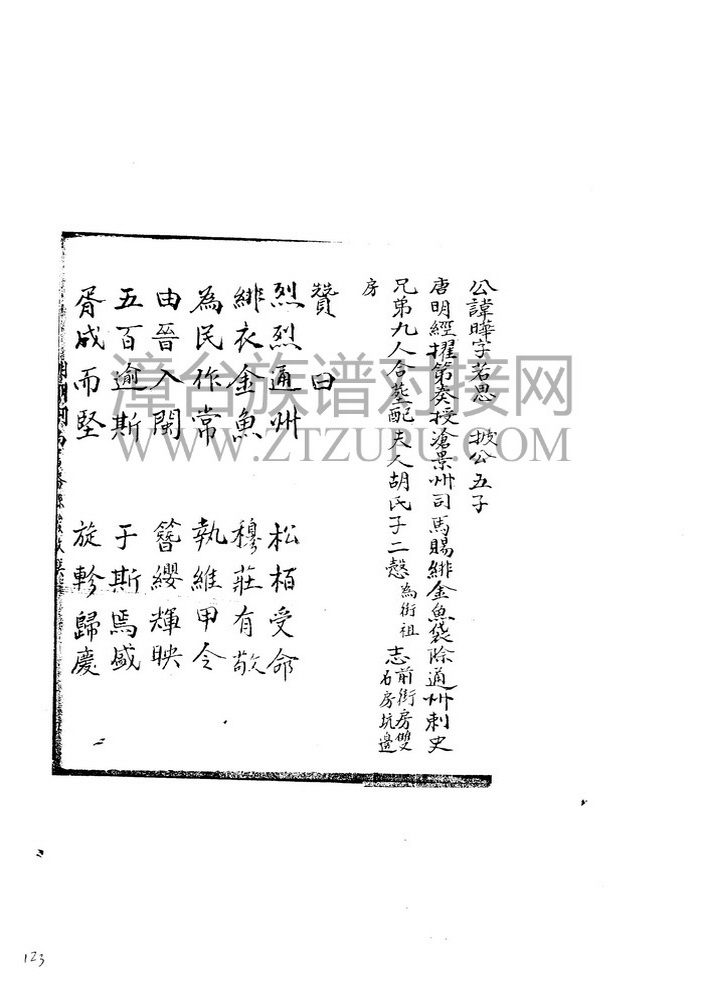 公諱暐字若思 披公五子
唐明經擢第奏授滄景州司馬賜緋金魚袋除通州刺史
兄弟九人合塟配夫人胡氏子二慤為街祖志前街房雙石房坑邊
房
贊曰
烈烈通州 松栢受命
緋衣金魚 穆莊有敬
為民作常 執維甲令
由晉入閩 簪纓輝映
五百逾斯 于斯焉盛
胥成而堅 旋軫歸慶
漳台族谱对接网
WWW.ZTZUPU.COM
123